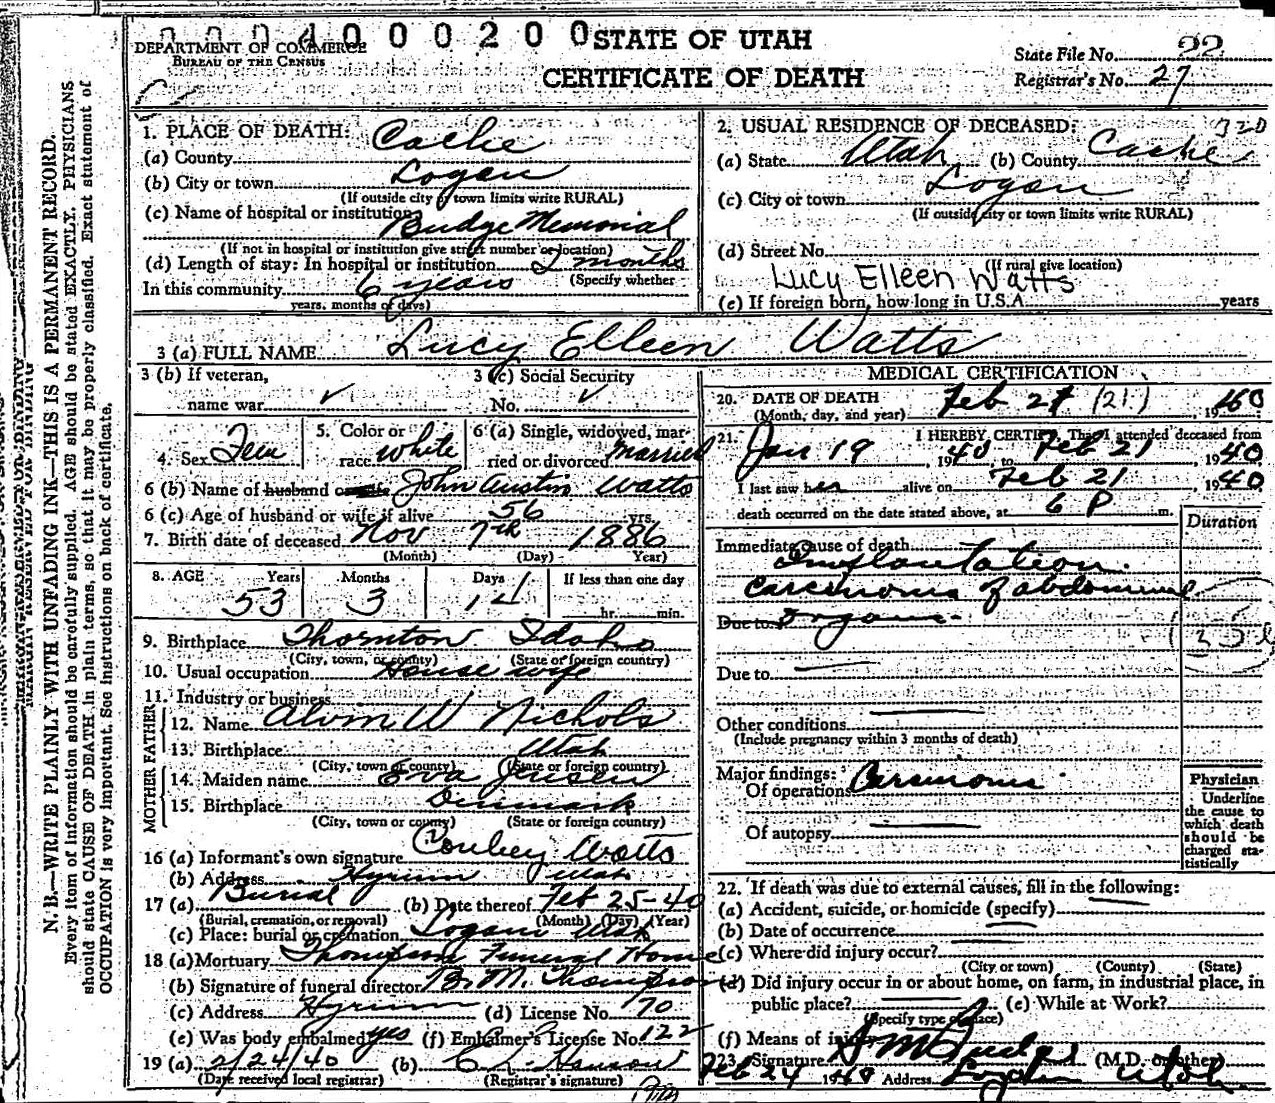 0 0 0 4 0 0 0 2 0 0 STATE OF UTAH
DEPARTMENT OF COMMERCE
BUREAU OF THE CENSUS
CERTIFICATE OF DEATH
State File No. 22
Registrar's No. 27
1. PLACE OF DEATH:
(a) County Cache
(b) City or town Logan
(If outside city or town limits write RURAL)
(c) Name of hospital or institution
Budge Memorial
(If not in hospital or institution give street number or location)
(d) Length of stay: In hospital or institution 2 months
(Specify whether
In this community 6 years
years, months or days)
2. USUAL RESIDENCE OF DECEASED: 320
(a) State Utah (b) County Cache
(c) City or town Logan
(If outside city or town limits write RURAL)
(d) Street No.
(If rural give location)
Lucy Elleen Watts
(e) If foreign born, how long in U.S.A. years
3 (a) FULL NAME Lucy Elleen Watts
3 (b) If veteran,
name war ✓
3 (c) Social Security
No. ✓
4. Sex Fem
5. Color or
race White
6 (a) Single, widowed, mar-
ried or divorced Married
6 (b) Name of husband or wife John Austin Watts
6 (c) Age of husband or wife if alive 56 yrs.
7. Birth date of deceased Nov 7th 1886
(Month) (Day) Year)
8. AGE Years Months Days If less than one day
53 3 14 hr. min.
9. Birthplace Thornton Idaho
(City, town, or county) (State or foreign country)
10. Usual occupation House wife
11. Industry or business
FATHER
12. Name Alvin W Nichols
13. Birthplace Utah
(City, town or county) (State or foreign country)
MOTHER
14. Maiden name Eva Jensen
15. Birthplace Denmark
(City, town or county) (State or foreign country)
16 (a) Informant's own signature Watts
(b) Address Hyrum Utah
17 (a) Burial (b) Date thereof Feb 25-40
(Burial, cremation, or removal) (Month) (Day) (Year)
(c) Place: burial or cremation Logan Utah
18 (a) Mortuary Thompson Funeral Home
(b) Signature of funeral director B. M. Thompson
(c) Address Hyrum (d) License No. 70
(e) Was body embalmed yes (f) Embalmer's License No. 122
19 (a) 2/24/40 (b) C L Hansen
(Date received local registrar) (Registrar's signature)
MEDICAL CERTIFICATION
20. DATE OF DEATH
(Month, day, and year) Feb 21 (21) , 1940
21. I HEREBY CERTIFY That I attended deceased from
Jan 19 , 1940 to Feb 21 1940
I last saw her alive on Feb 21 , 1940
death occurred on the date stated above, at 6 P m.
Duration
Immediate cause of death
Implantation
Carcinoma of abdominal
Due to organs
Due to
Other conditions
(Include pregnancy within 3 months of death)
Major findings:
Of operations Carcinoma
Of autopsy
Physician
Underline
the cause to
which death
should be
charged sta-
tistically
22. If death was due to external causes, fill in the following:
(a) Accident, suicide, or homicide (specify)
(b) Date of occurrence
(c) Where did injury occur?
(City or town) (County) (State)
(d) Did injury occur in or about home, on farm, in industrial place, in
public place? (e) While at Work?
(Specify type of place)
(f) Means of injury
23. Signature S M Budge (M.D. or other)
Feb 24 1940 Address Logan Utah
N. B.—WRITE PLAINLY WITH UNFADING INK—THIS IS A PERMANENT RECORD.
Every item of information should be carefully supplied. AGE should be stated EXACTLY. PHYSICIANS
should state CAUSE OF DEATH in plain terms, so that it may be properly classified. Exact statement of
OCCUPATION is very important. See instructions on back of certificate.